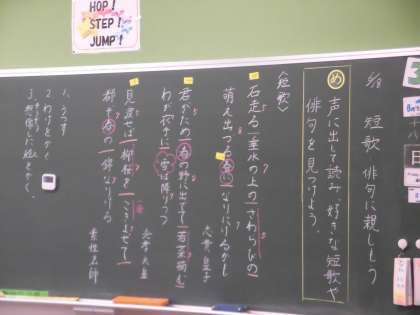 HOP!
STEP!
JUMP!
短歌・俳句に親しもう
め
声に出して読み、好きな短歌や
俳句を見つけよう。
〈短歌〉
石走る垂水の上のさわらびの
萌え出づる春になりにけるかも
志貴皇子
君がため春の野に出でて若菜摘む
わが衣手に雪は降りつつ
光孝天皇
見渡せば柳桜をこきまぜて
都ぞ春の錦なりける
素性法師
1、うつす
2、わけをかく
3、想像した絵をかく。